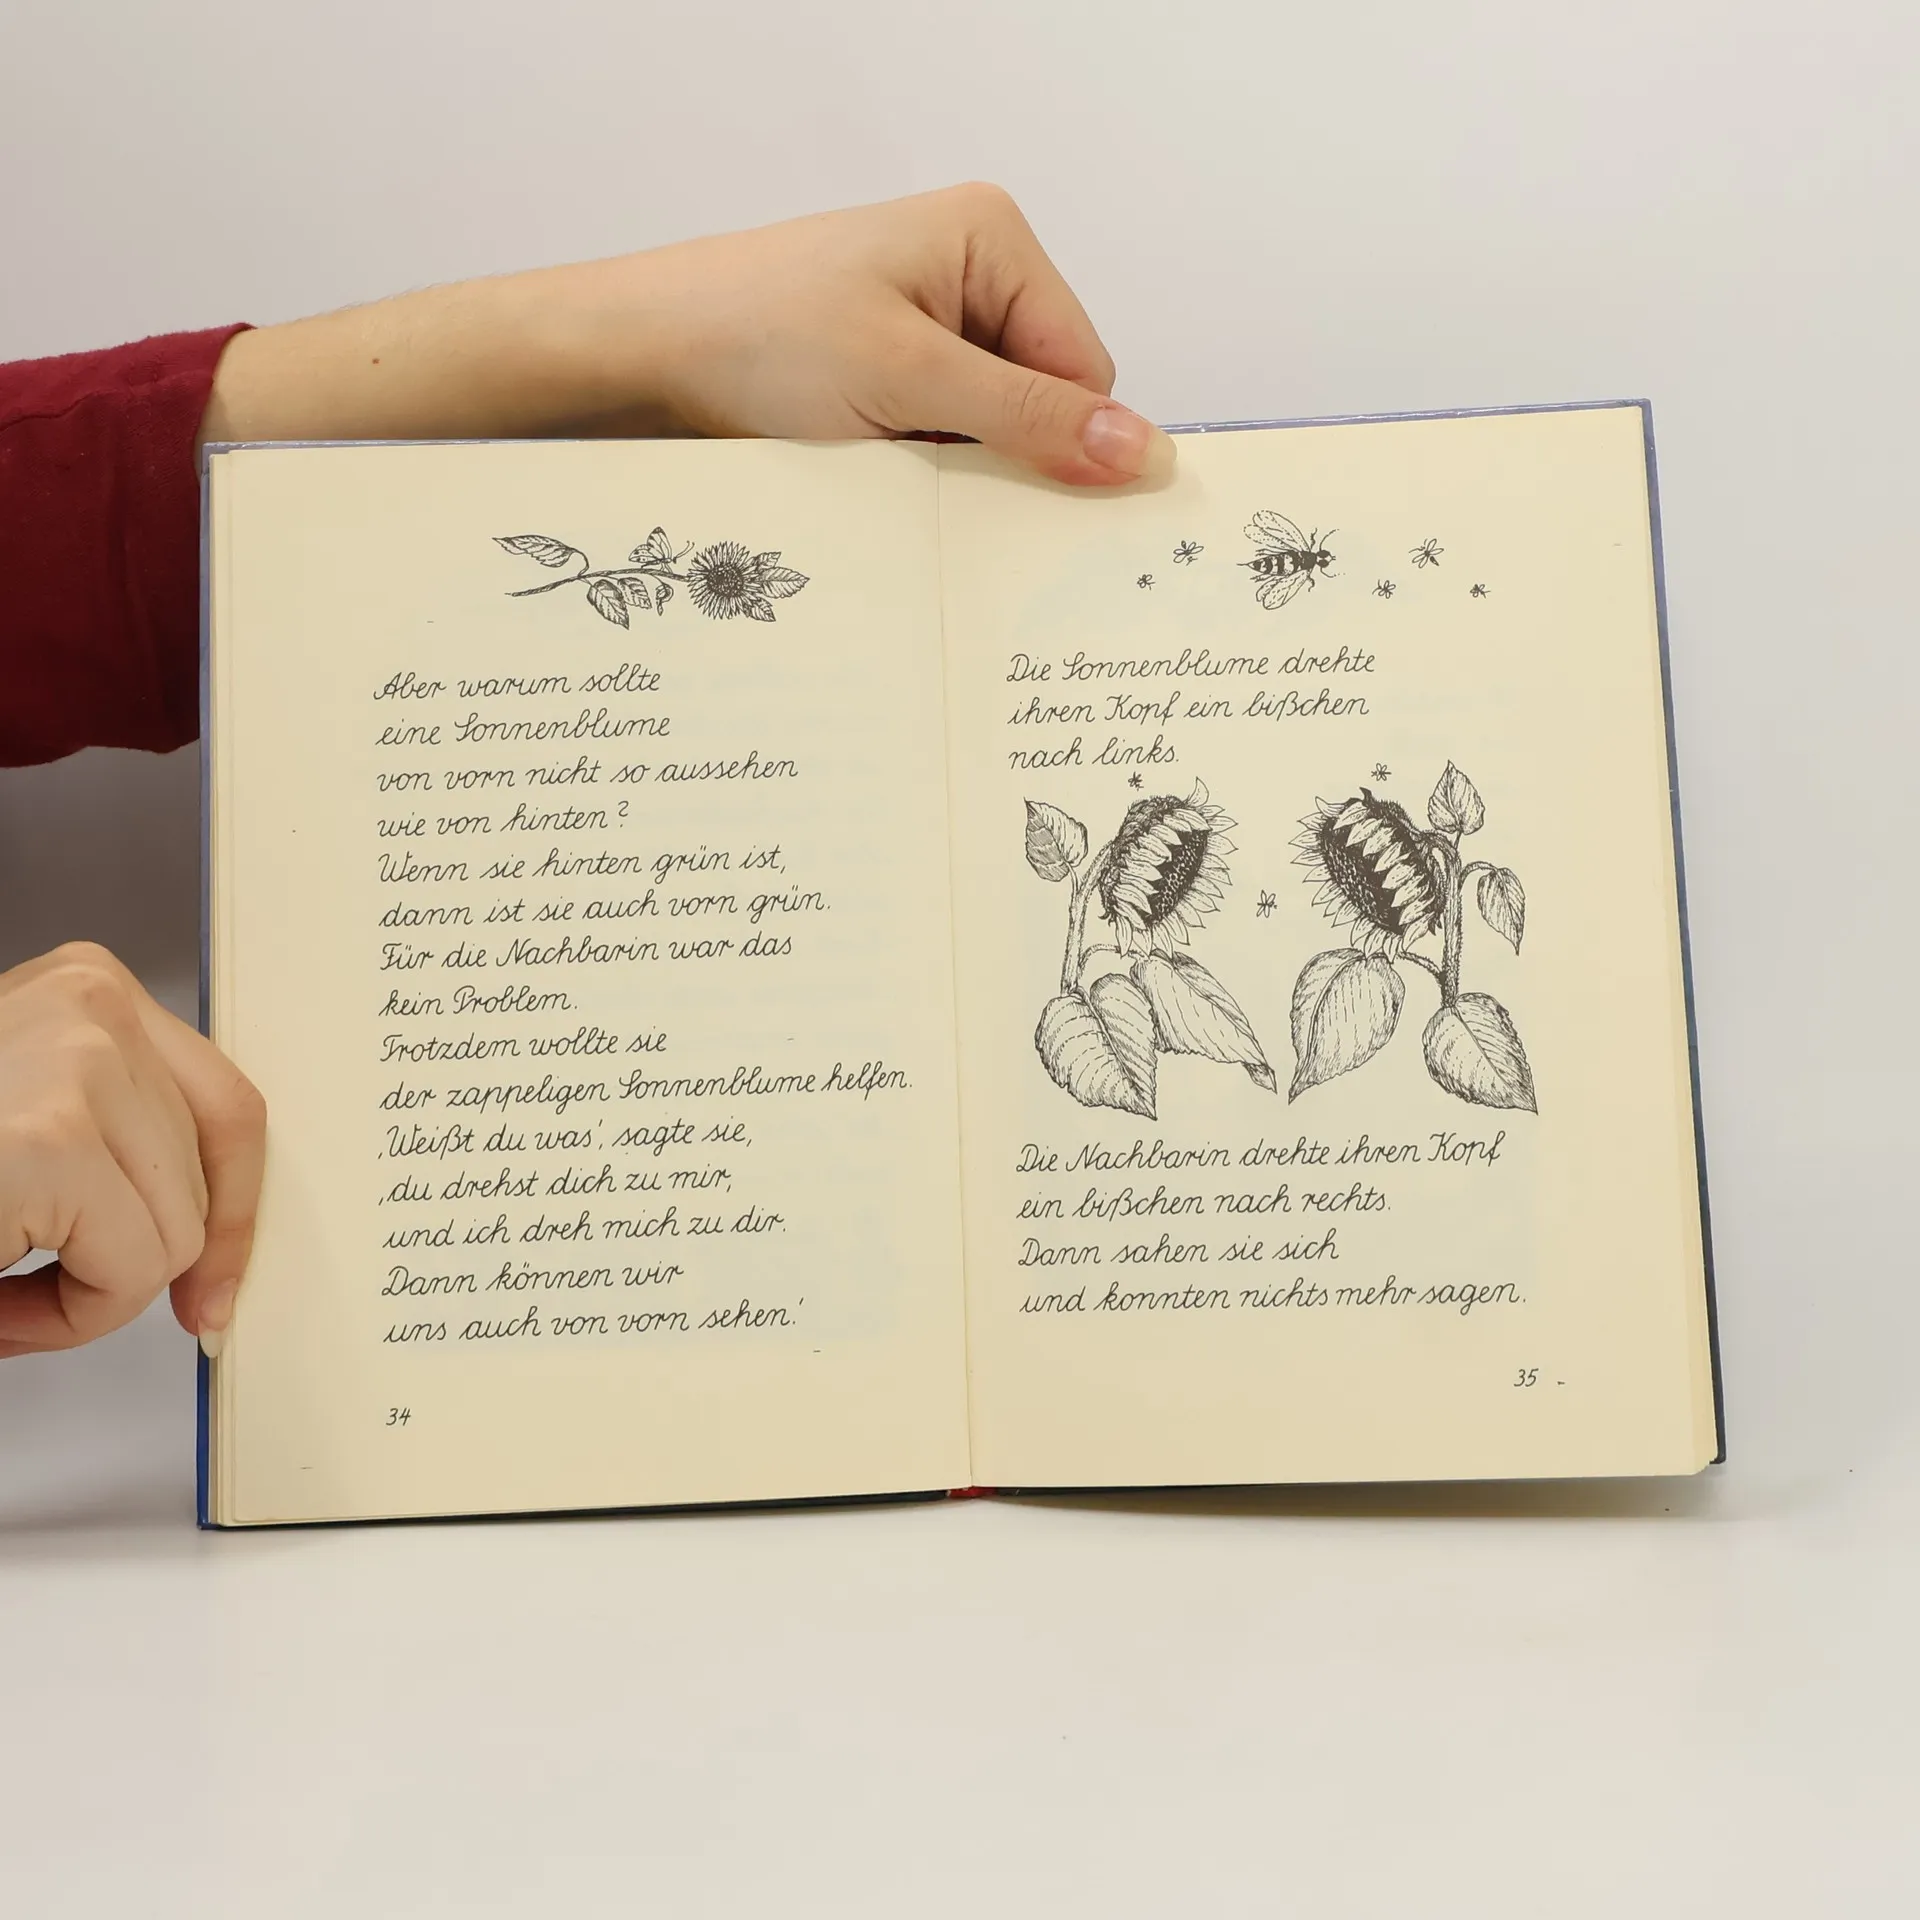 Aber warum sollte
eine Sonnenblume
von vorn nicht so aussehen
wie von hinten?
Wenn sie hinten grün ist,
dann ist sie auch vorn grün.
Für die Nachbarin war das
kein Problem.
Trotzdem wollte sie
der zappeligen Sonnenblume helfen.
‚Weißt du was‘, sagte sie,
‚du drehst dich zu mir,
und ich dreh mich zu dir.
Dann können wir
uns auch von vorn sehen.‘
34
Die Sonnenblume drehte
ihren Kopf ein bißchen
nach links.
Die Nachbarin drehte ihren Kopf
ein bißchen nach rechts.
Dann sahen sie sich
und konnten nichts mehr sagen.
35